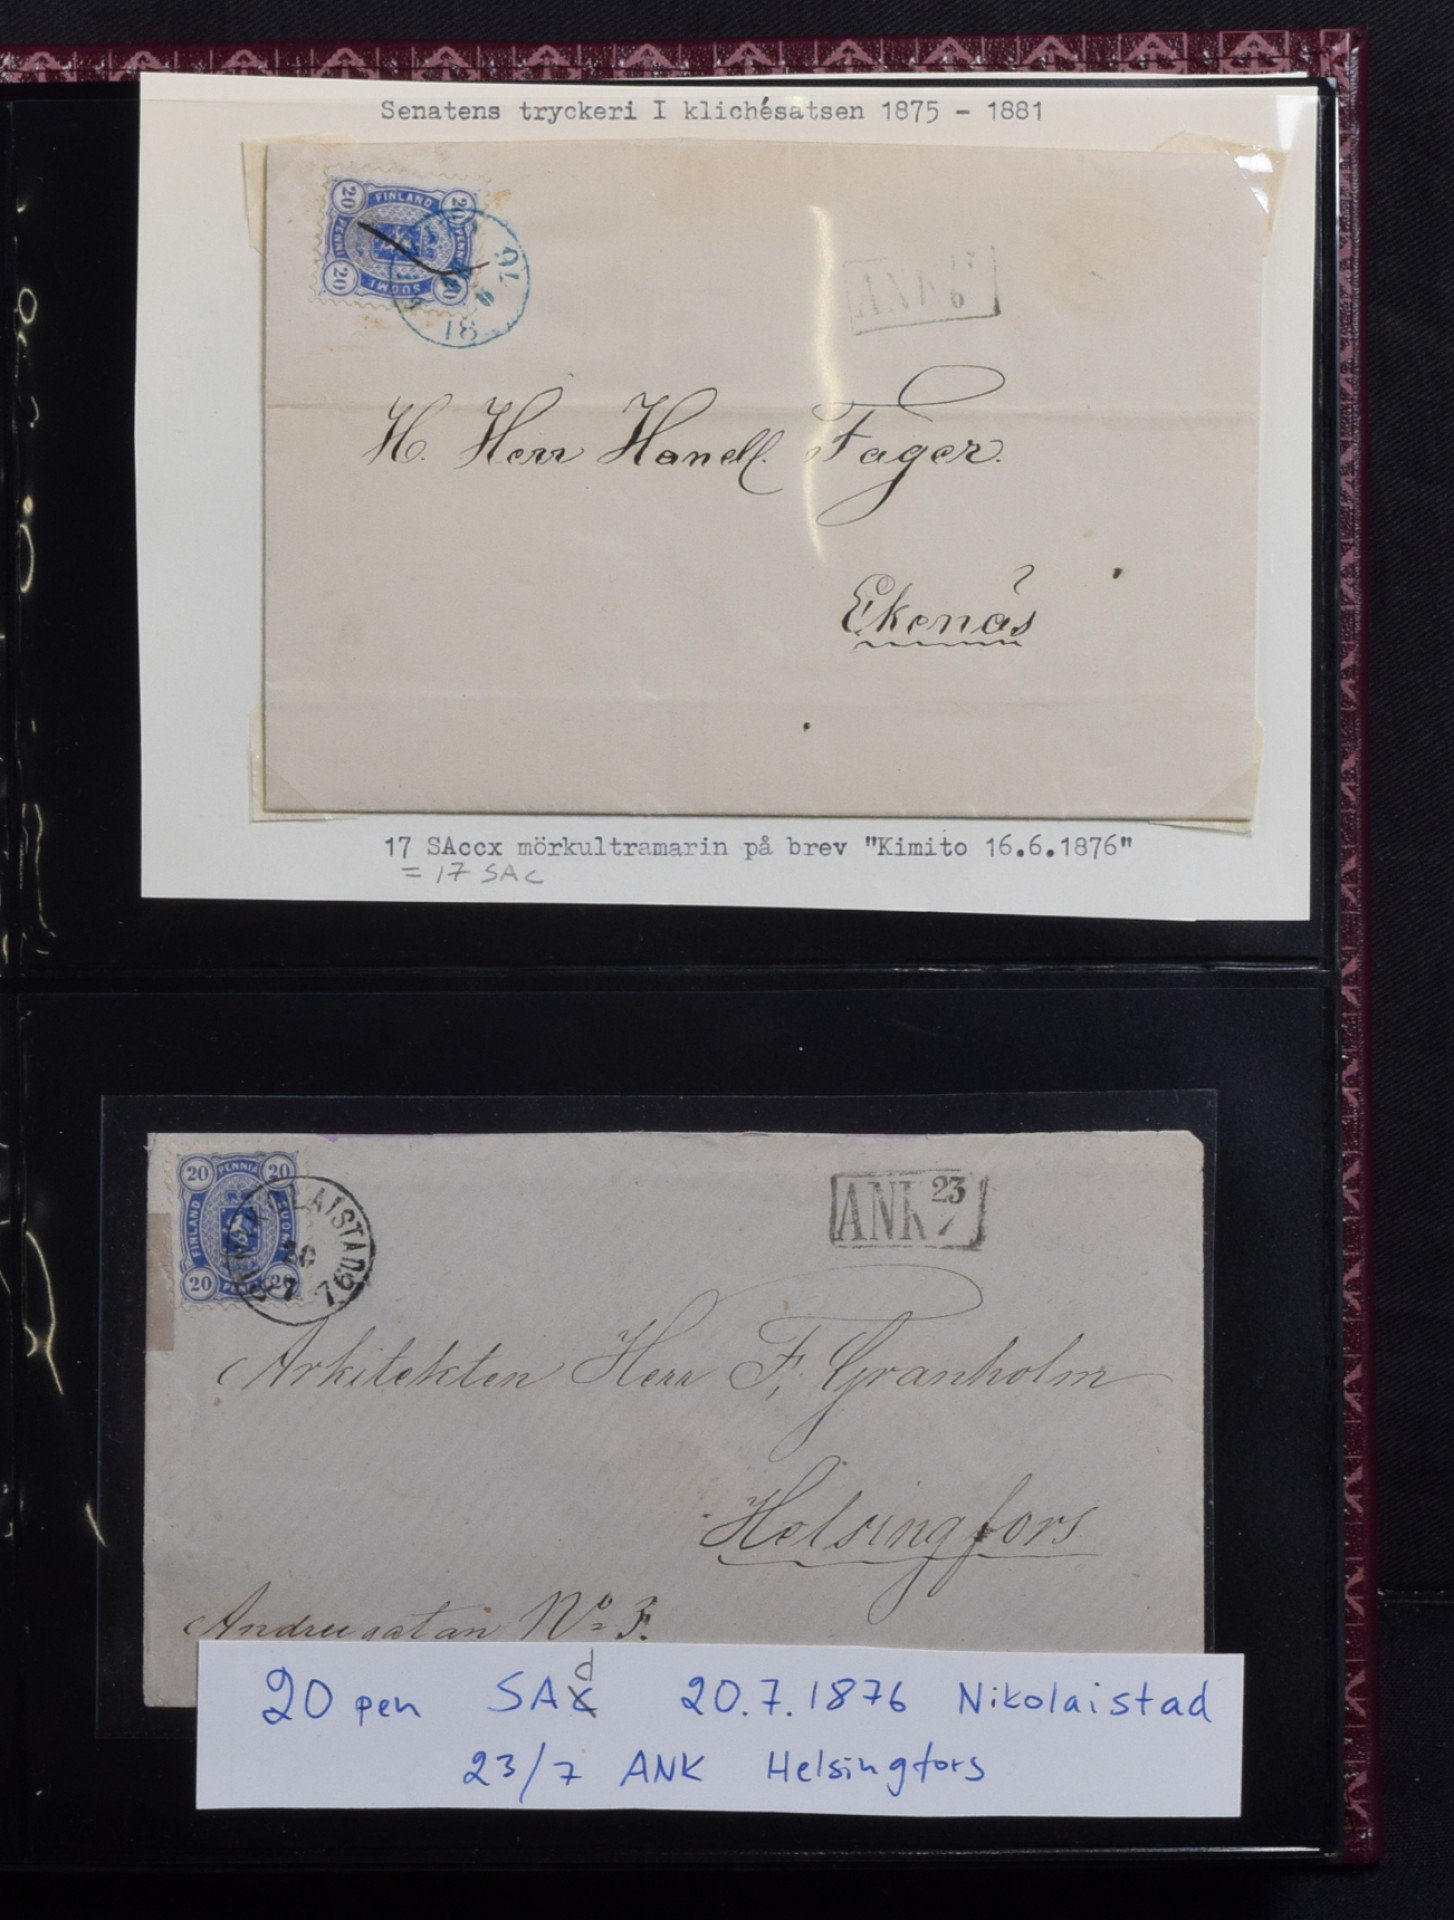 Senatens tryckeri I klichésatsen 1875 - 1881
20 FINLAND 20
PENNI PENNI
20 SUOMI 20
18 76
ANK
6
H. Herr Handl. Fager.
Ekenäs
17 SAccx mörkultramarin på brev "Kimito 16.6.1876"
= 17 SAC
20 PENNIÄ 20
FINLAND SUOMI
20 20
NIKOLAISTAD
20
7 76
ANK 23
7
Arkitekten Herr F. Granholm
Helsingfors
Andreegatan No 3.
d
20 pen SAc 20.7.1876 Nikolaistad
23/7 ANK Helsingfors